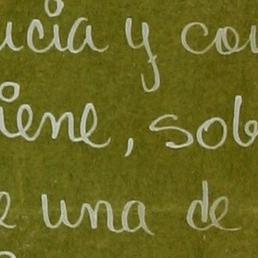 ucia y con
iene, sob
e una de